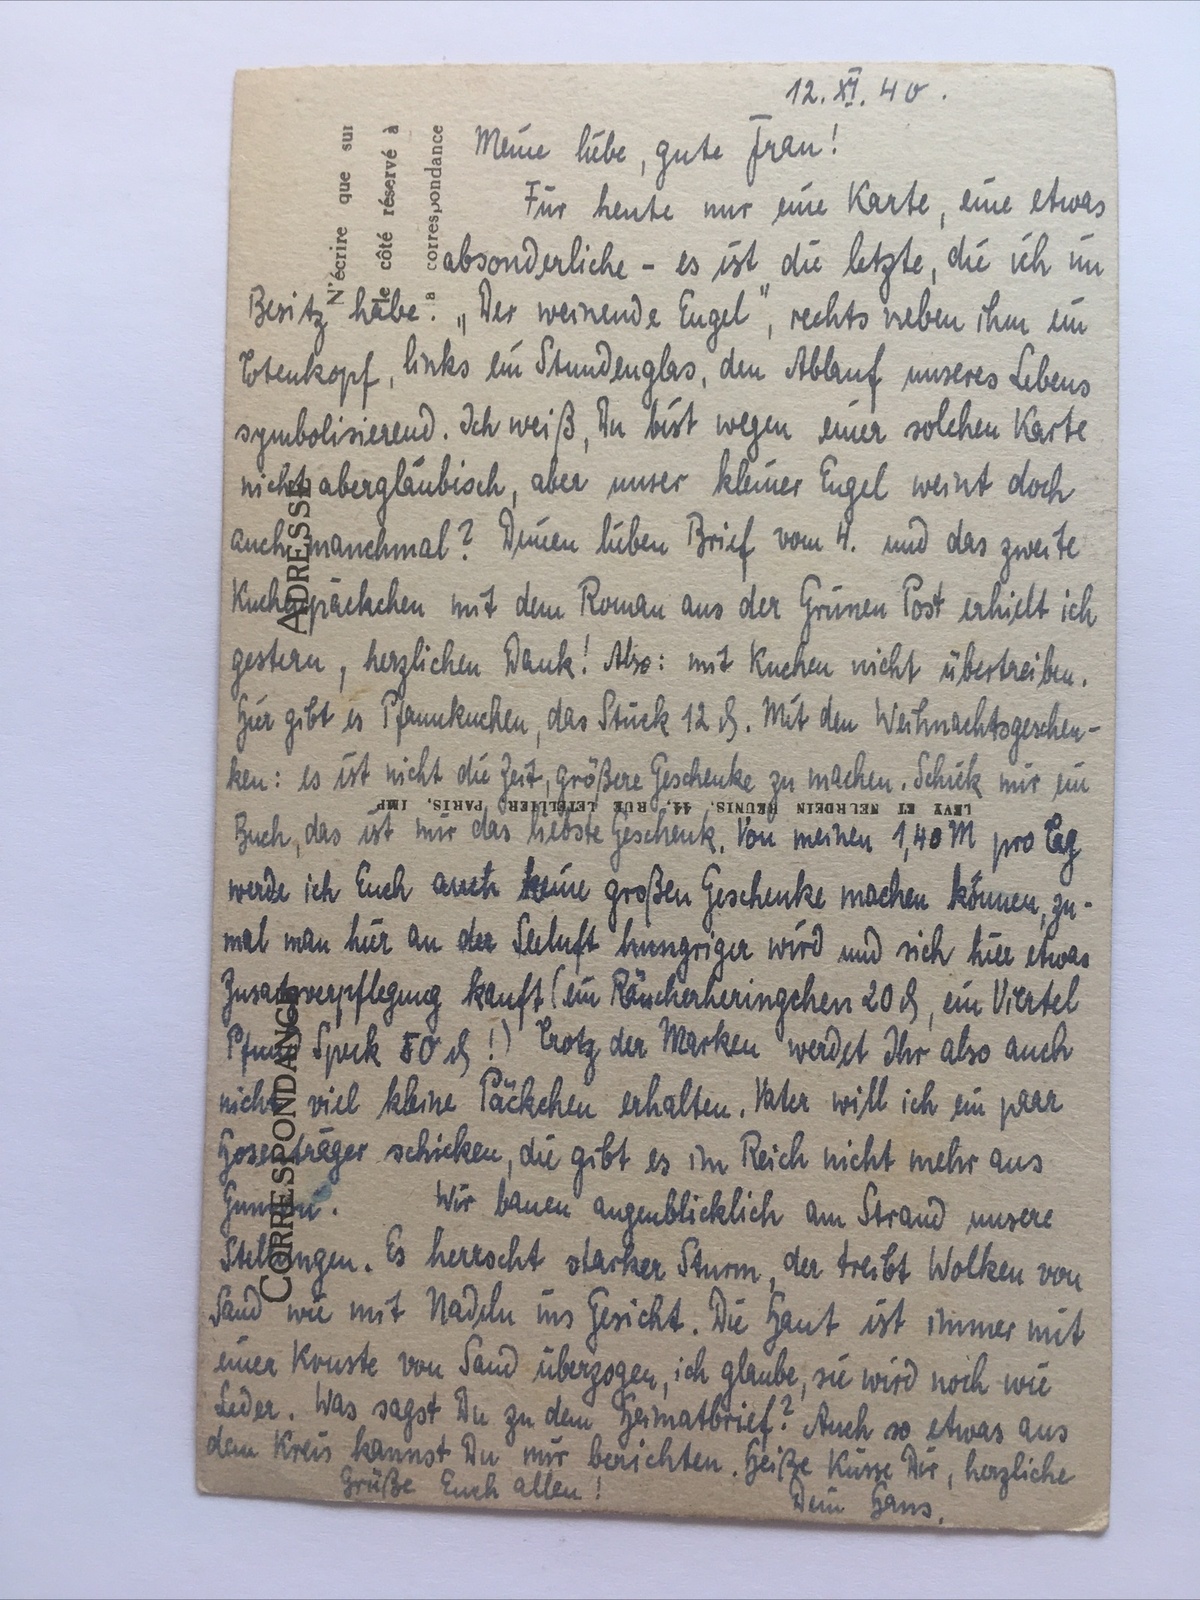 12. XI. 40.
Meine liebe, gute Frau!
Für heute nur eine Karte, eine etwas
absonderliche - es ist die letzte, die ich im
Besitz habe. „Der weinende Engel", rechts neben ihm ein
Totenkopf, links ein Stundenglas, den Ablauf unseres Lebens
symbolisierend. Ich weiß, Du bist wegen einer solchen Karte
nicht abergläubisch, aber unser kleiner Engel weint doch
auch manchmal? Deinen lieben Brief vom 4. und das zweite
Kuchenpäckchen mit dem Roman aus der Grünen Post erhielt ich
gestern, herzlichen Dank! Also: mit Kuchen nicht übertreiben.
Hier gibt es Pfannkuchen, das Stück 12 ₰. Mit den Weihnachtsgeschen-
ken: es ist nicht die Zeit, größere Geschenke zu machen. Schick mir ein
Buch, das ist mir das liebste Geschenk. Von meinen 1,40 M pro Tag
werde ich Euch auch keine großen Geschenke machen können, zu-
mal man hier an der Seeluft hungriger wird und sich hier etwas
Zusatzverpflegung kauft (ein Räucherheringchen 20 ₰, ein Viertel
Pfund Speck 50 ₰!) Trotz der Marken werdet Ihr also auch
nicht viel kleine Päckchen erhalten. Vater will ich ein paar
Hosenträger schicken, die gibt es im Reich nicht mehr aus
Gummi. Wir bauen augenblicklich am Strand unsere
Stellungen. Es herrscht starker Sturm, der treibt Wolken von
Sand wie mit Nadeln ins Gesicht. Die Haut ist immer mit
einer Kruste von Sand überzogen, ich glaube, sie wird noch wie
Leder. Was sagst Du zu dem Heimatbrief? Auch so etwas aus
dem Kreis kannst Du mir berichten. Heiße Küsse Dir, herzliche
Grüße Euch allen!
Dein Hans.
N'écrire que sur
le côté réservé à
la correspondance
ADRESSE
CORRESPONDANCE
LEVY ET NEURDEIN REUNIS, 44, RUE LETELLIER, PARIS, IMP.